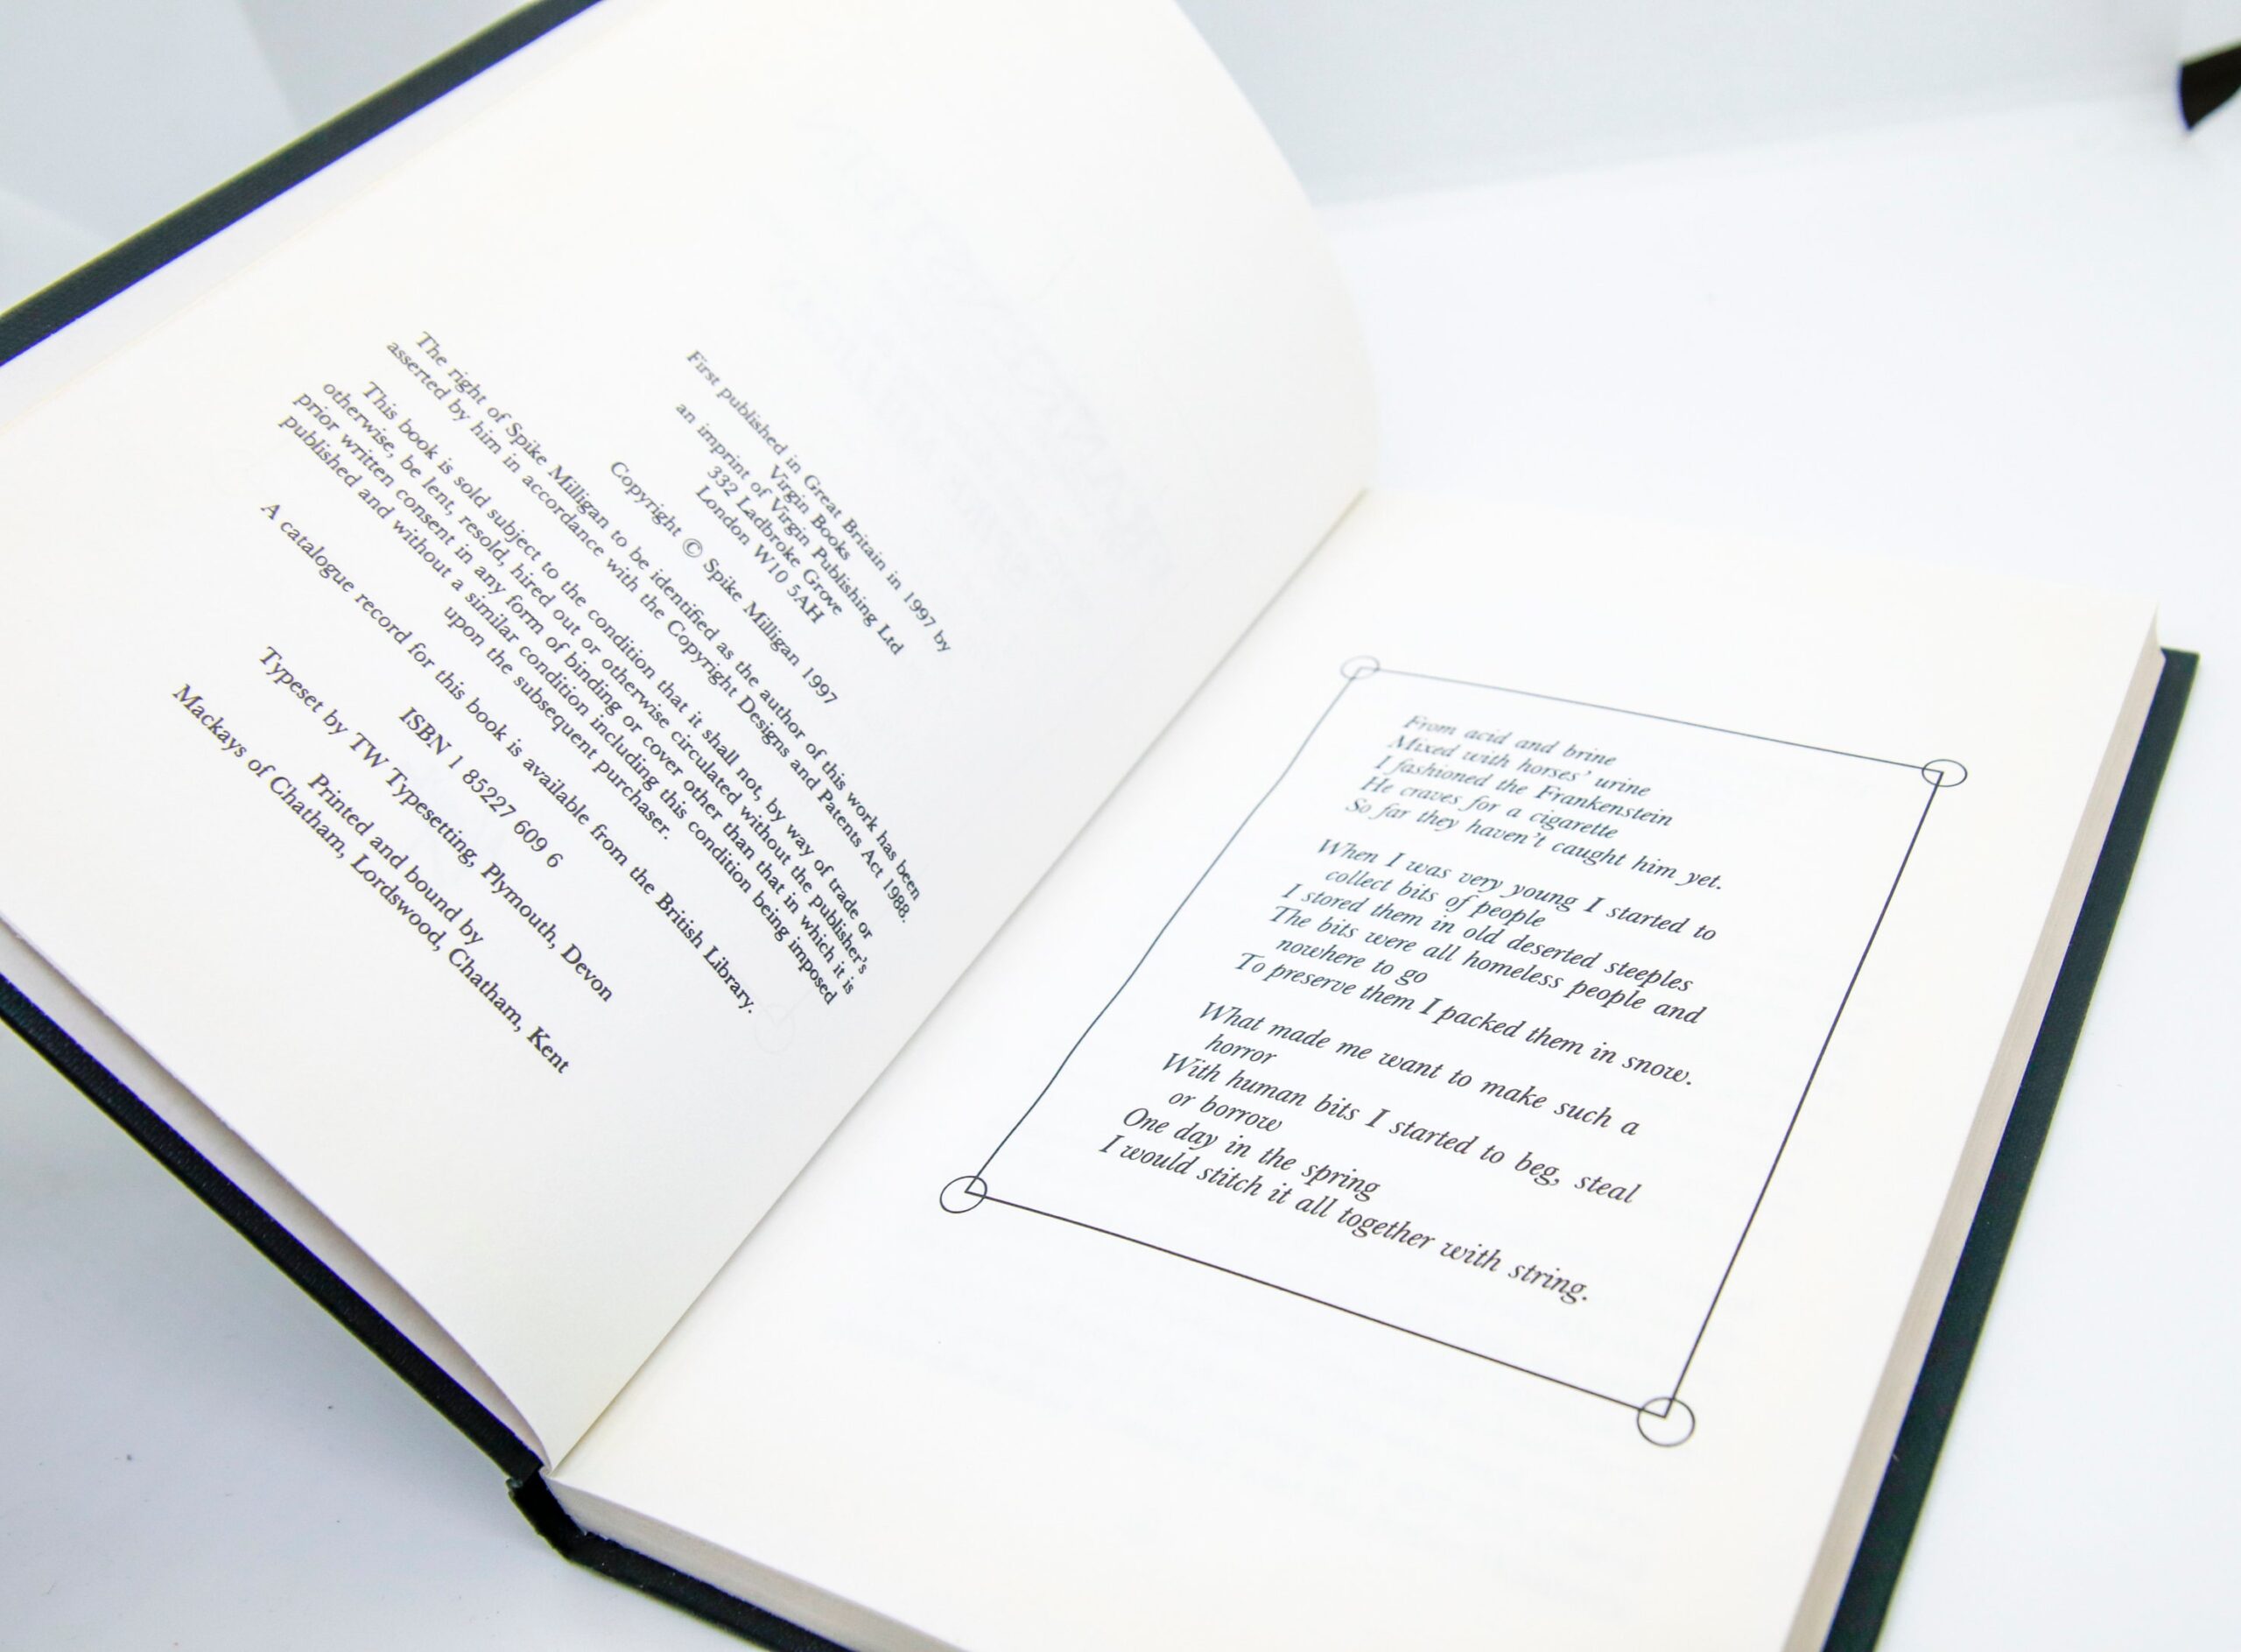 First published in Great Britain in 1997 by
Virgin Books
an imprint of Virgin Publishing Ltd
332 Ladbroke Grove
London W10 5AH
Copyright © Spike Milligan 1997
The right of Spike Milligan to be identified as the author of this work has been
asserted by him in accordance with the Copyright Designs and Patents Act 1988.
This book is sold subject to the condition that it shall not, by way of trade or
otherwise, be lent, resold, hired out or otherwise circulated without the publisher's
prior written consent in any form of binding or cover other than that in which it is
published and without a similar condition including this condition being imposed
upon the subsequent purchaser.
A catalogue record for this book is available from the British Library.
ISBN 1 85227 609 6
Typeset by TW Typesetting, Plymouth, Devon
Printed and bound by
Mackays of Chatham, Lordswood, Chatham, Kent
From acid and brine
Mixed with horses' urine
I fashioned the Frankenstein
He craves for a cigarette
So far they haven't caught him yet.
When I was very young I started to
collect bits of people
I stored them in old deserted steeples
The bits were all homeless people and
nowhere to go
To preserve them I packed them in snow.
What made me want to make such a
horror
With human bits I started to beg, steal
or borrow
One day in the spring
I would stitch it all together with string.